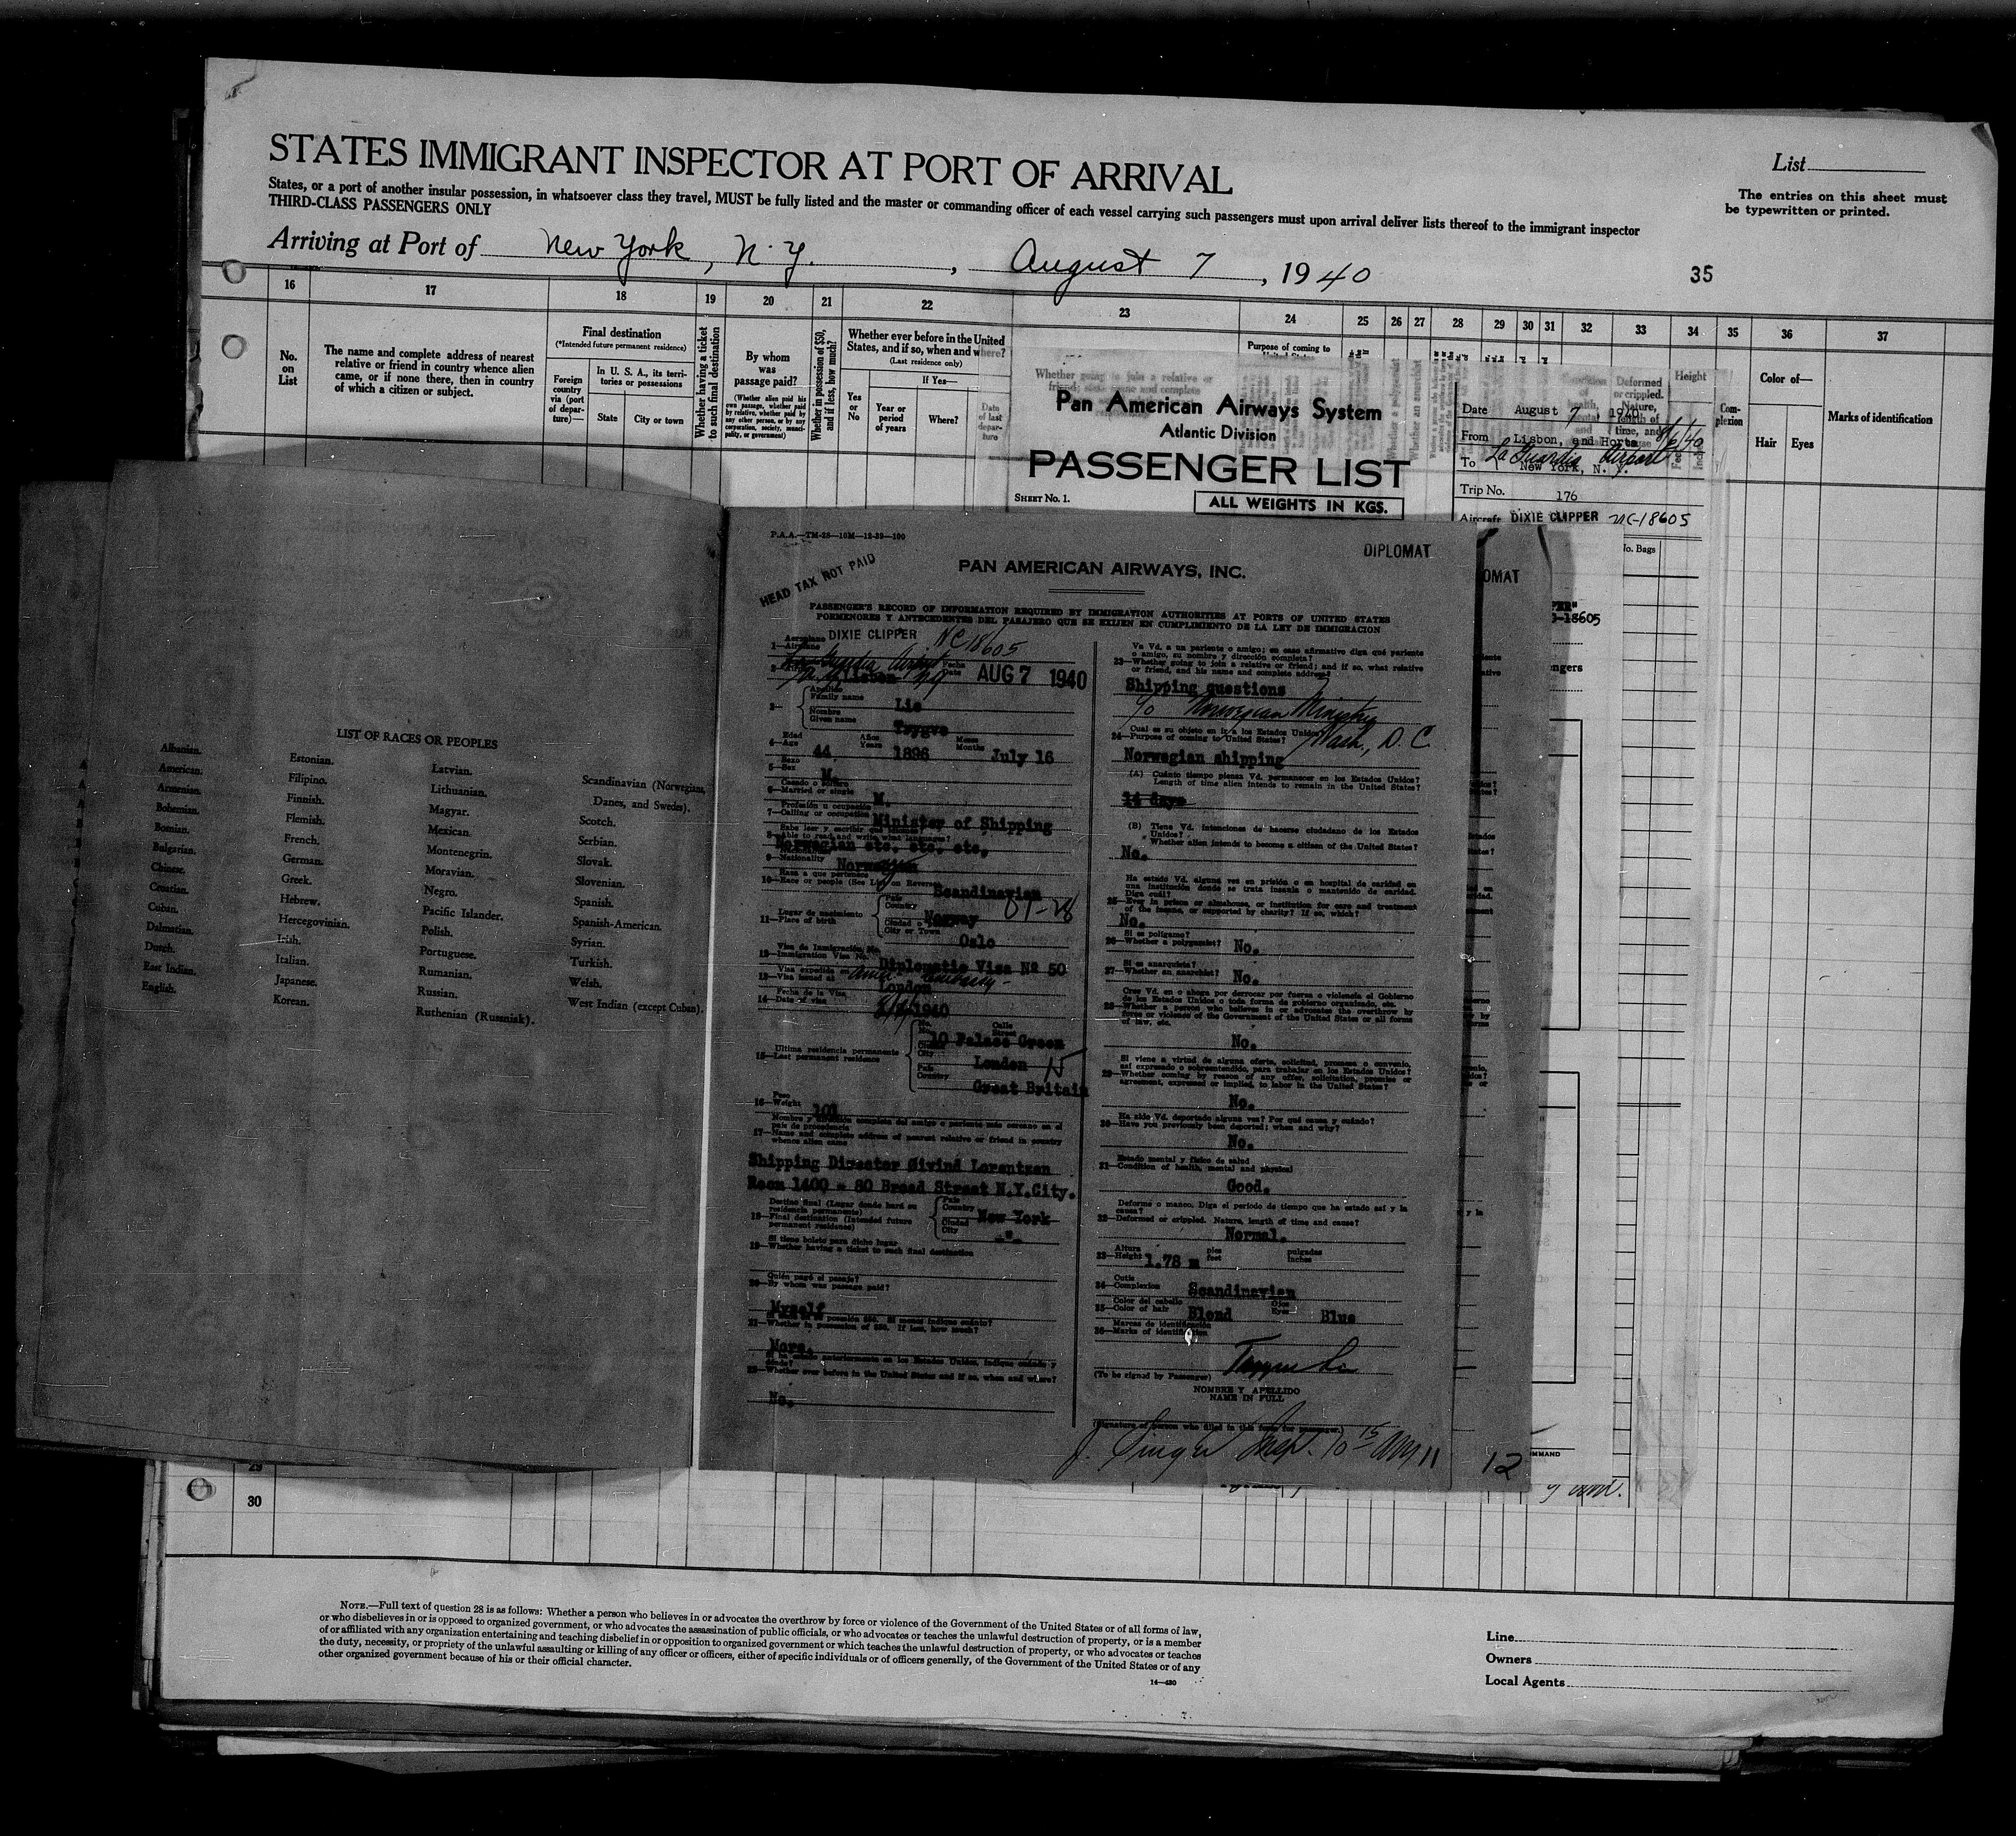 STATES IMMIGRANT INSPECTOR AT PORT OF ARRIVAL
States, or a port of another insular possession, in whatsoever class they travel, MUST be fully listed and the master or commanding officer of each vessel carrying such passengers must upon arrival deliver lists thereof to the immigrant inspector
THIRD-CLASS PASSENGERS ONLY
List
The entries on this sheet must
be typewritten or printed.
Arriving at Port of New York, N.Y. , August 7 , 1940
35
16 17 18 19 20 21 22 23 24 25 26 27 28 29 30 31 32 33 34 35 36 37
No.
on
List
The name and complete address of nearest
relative or friend in country whence alien
came, or if none there, then in country
of which a citizen or subject.
Final destination
(*Intended future permanent residence)
Foreign
country
via (port
of depar-
ture)—
In U. S. A., its terri-
tories or possessions
State City or town
Whether having a ticket
to such final destination
By whom
was
passage paid?
(Whether alien paid his
own passage, whether paid
by relative, whether paid by
any other person, or by any
corporation, society, munici-
pality, or government)
Whether in possession of $50,
and if less, how much?
Whether ever before in the United
States, and if so, when and where?
(Last residence only)
If Yes—
Yes
or
No
Year or
period
of years
Where?
Date
of last
depar-
ture
Purpose of coming to
United States
Whether going to join a relative or
friend; state name and complete
Condition
of
health,
mental
and
Deformed
or crippled.
Nature,
length of
time, and
cause
Height
Com-
plexion
Color of—
Hair Eyes
Marks of identification
Pan American Airways System
Atlantic Division
PASSENGER LIST
SHEET NO. 1.
ALL WEIGHTS IN KGS.
Date August 7, 1940
From Lisbon, and Horta 8/6/40
To La Guardia Airport
New York, N. Y.
Trip No. 176
Aircraft DIXIE CLIPPER NC-18605
No. Bags
LIST OF RACES OR PEOPLES
Albanian.
American.
Armenian.
Bohemian.
Bosnian.
Bulgarian.
Chinese.
Croatian.
Cuban.
Dalmatian.
Dutch.
East Indian.
English.
Estonian.
Filipino.
Finnish.
Flemish.
French.
German.
Greek.
Hebrew.
Hercegovinian.
Irish.
Italian.
Japanese.
Korean.
Latvian.
Lithuanian.
Magyar.
Mexican.
Montenegrin.
Moravian.
Negro.
Pacific Islander.
Polish.
Portuguese.
Rumanian.
Russian.
Ruthenian (Russniak).
Scandinavian (Norwegians,
Danes, and Swedes).
Scotch.
Serbian.
Slovak.
Slovenian.
Spanish.
Spanish-American.
Syrian.
Turkish.
Welsh.
West Indian (except Cuban).
P.A.A.—TM-28—10M—12-39—100
HEAD TAX NOT PAID
DIPLOMAT
PAN AMERICAN AIRWAYS, INC.
PASSENGER'S RECORD OF INFORMATION REQUIRED BY IMMIGRATION AUTHORITIES AT PORTS OF UNITED STATES
PORMENORES Y ANTECEDENTES DEL PASAJERO QUE SE EXIJEN EN CUMPLIMIENTO DE LA LEY DE IMMIGRACION
Aeroplano
1—Airplane DIXIE CLIPPER NC18605
2— La Guardia Airport Lisbon Fecha Date AUG 7 1940
3— Apellido
Family name Lie
Nombre
Given name Trygve
Edad
4—Age 44 Años Years 1896 Meses Months July 16
Sexo
5—Sex M.
Casado o soltero
6—Married or single M.
Profesión u ocupación
7—Calling or occupation Minister of Shipping
Sabe leer y escribir qué idiomas?
8—Able to read and write what languages?
Norwegian etc. etc. etc.
9—Nationality Norwegian
Raza a que pertenece
10—Race or people (See List on Reverse) Scandinavian
Lugar de nacimiento
11—Place of birth
País
Country Norway
Ciudad o
City or Town Oslo
Visa de Inmigración No.
12—Immigration Visa No. Diplomatic Visa Nº 50
Visa expedida en
13—Visa issued at Amer. Embassy - London
Fecha de la Visa
14—Date of visa 1940
Ultima residencia permanente
15—Last permanent residence
No. Calle
Street 10 Palace Green
City London 15
País
Country Great Britain
Peso
16—Weight 101
Nombre y dirección completa del amigo o pariente más cercano en el
país de procedencia
17—Name and complete address of nearest relative or friend in country
whence alien came
Shipping Director Øivind Lorentzen
Room 1400 - 80 Broad Street N.Y.City.
Destino final (Lugar donde hará su
residencia permanente)
18—Final destination (Intended future
permanent residence)
País
Country New York
Ciudad
City -"-
Si tiene boleto para dicho lugar
19—Whether having a ticket to such final destination
Quién pagó el pasaje?
20—By whom was passage paid?
Myself
21—Whether in possession of $50. If less, how much?
More.
22—Whether ever before in the United States and if so, when and where?
No.
Va Vd. a un pariente o amigo; en caso afirmativo diga qué pariente
o amigo, su nombre y dirección completa?
23—Whether going to join a relative or friend; and if so, what relative
or friend, and his name and complete address?
Shipping questions
c/o Norwegian Ministry
Wash., D.C.
Cual es su objeto en ir a los Estados Unidos?
24—Purpose of coming to United States?
Norwegian shipping
(A) Cuánto tiempo piensa Vd. permanecer en los Estados Unidos?
Length of time alien intends to remain in the United States?
14 days
(B) Tiene Vd. intenciones de hacerse ciudadano de los Estados
Unidos?
Whether alien intends to become a citizen of the United States?
No.
Ha estado Vd. alguna vez en prisión o en hospital de caridad en
una institución donde se trata insania o mantenido de caridad.
Diga cuál?
25—Ever in prison or almshouse, or institution for care and treatment
of the insane, or supported by charity? If so, which?
No.
Si es poligamo?
26—Whether a polygamist? No.
Si es anarquista?
27—Whether an anarchist? No.
Cree Vd. en o aboga por derrocar por fuerza o violencia el Gobierno
de los Estados Unidos o toda forma de gobierno organizado, etc.
28—Whether a person who believes in or advocates the overthrow by
force or violence of the Government of the United States or all forms
of law, etc.
No.
Si viene a virtud de alguna oferta, solicitud, promesa o convenio,
así expresado o sobreentendido, para trabajar en los Estados Unidos?
29—Whether coming by reason of any offer, solicitation, promise or
agreement, expressed or implied, to labor in the United States?
No.
Ha sido Vd. deportado alguna vez? Por qué causa y cuándo?
30—Have you previously been deported; when and why?
No.
Estado mental y físico de salud
31—Condition of health, mental and physical
Good.
Deforme o manco. Diga el período de tiempo que ha estado así y la
causa?
32—Deformed or crippled. Nature, length of time and cause?
Normal.
Altura
33—Height 1.78 m pies feet pulgadas inches
Cutis
34—Complexion Scandinavian
Color del cabello
35—Color of hair Blond Ojos Eyes Blue
Marcas de identificación
36—Marks of identification
Trygve Lie
(To be signed by Passenger)
NOMBRE Y APELLIDO
NAME IN FULL
(Signature of person who filled in this form for passenger.)
J. Singer Insp. 10 15 AM 11
12
OMAT
18605
ngers
MMAND
29
30
NOTE.—Full text of question 28 is as follows: Whether a person who believes in or advocates the overthrow by force or violence of the Government of the United States or of all forms of law,
or who disbelieves in or is opposed to organized government, or who advocates the assassination of public officials, or who advocates or teaches the unlawful destruction of property, or is a member
of or affiliated with any organization entertaining and teaching disbelief in or opposition to organized government or which teaches the unlawful destruction of property, or who advocates or teaches
the duty, necessity, or propriety of the unlawful assaulting or killing of any officer or officers, either of specific individuals or of officers generally, of the Government of the United States or of any
other organized government because of his or their official character.
14—430
Line
Owners
Local Agents